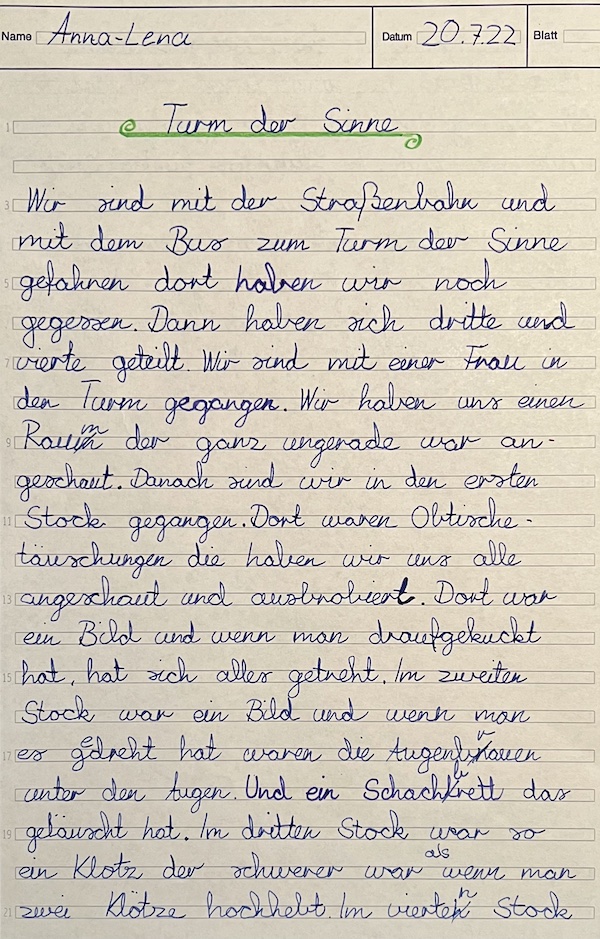 Name Anna-Lena Datum 20.7.22 Blatt
1 Turm der Sinne
3 Wir sind mit der Straßenbahn und
mit dem Bus zum Turm der Sinne
5 gefahren dort haben wir noch
gegessen. Dann haben sich dritte und
7 vierte geteilt. Wir sind mit einer Frau in
den Turm gegangen. Wir haben uns einen
9 Raum der ganz ungerade war an-
geschaut. Danach sind wir in den ersten
11 Stock gegangen. Dort waren Obtische-
täuschungen die haben wir uns alle
13 angeschaut und ausbrobiert. Dort war
ein Bild und wenn man draufgekuckt
15 hat, hat sich alles getreht. Im zweiten
Stock war ein Bild und wenn man
17 es gedreht hat waren die Augenbrauen
unter den Augen. Und ein Schachbrett das
19 geläuscht hat. Im dritten Stock war so
ein Klotz der schwerer war als wenn man
21 zwei Klötze hochhebt. Im vierten Stock